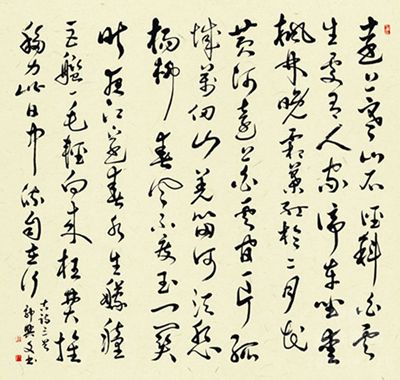 遠上寒山石徑斜白雲
生處有人家停車坐愛
楓林晚霜葉紅於二月花
黃河遠上白雲間一片孤
城萬仞山羌笛何須怨
楊柳春風不度玉門關
昨夜江邊春水生艨艟
巨艦一毛輕向來枉費推
移力此日中流自在行
古詩三首